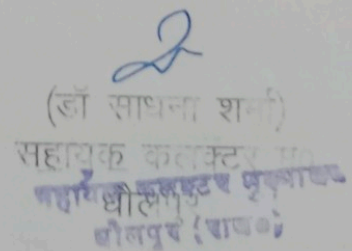 (डॉ साधना शर्मा)
सहायक कलक्टर
धौलपुर
धौलपुर (राज०)